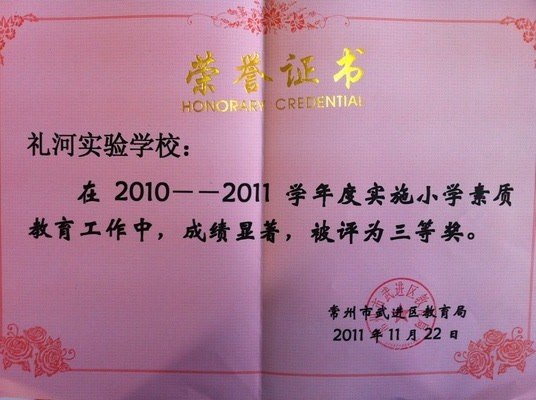 荣誉证书
HONORARY CREDENTIAL
礼河实验学校：
在 2010——2011 学年度实施小学素质
教育工作中，成绩显著，被评为三等奖。
常州市武进区教育局
2011 年 11 月 22 日